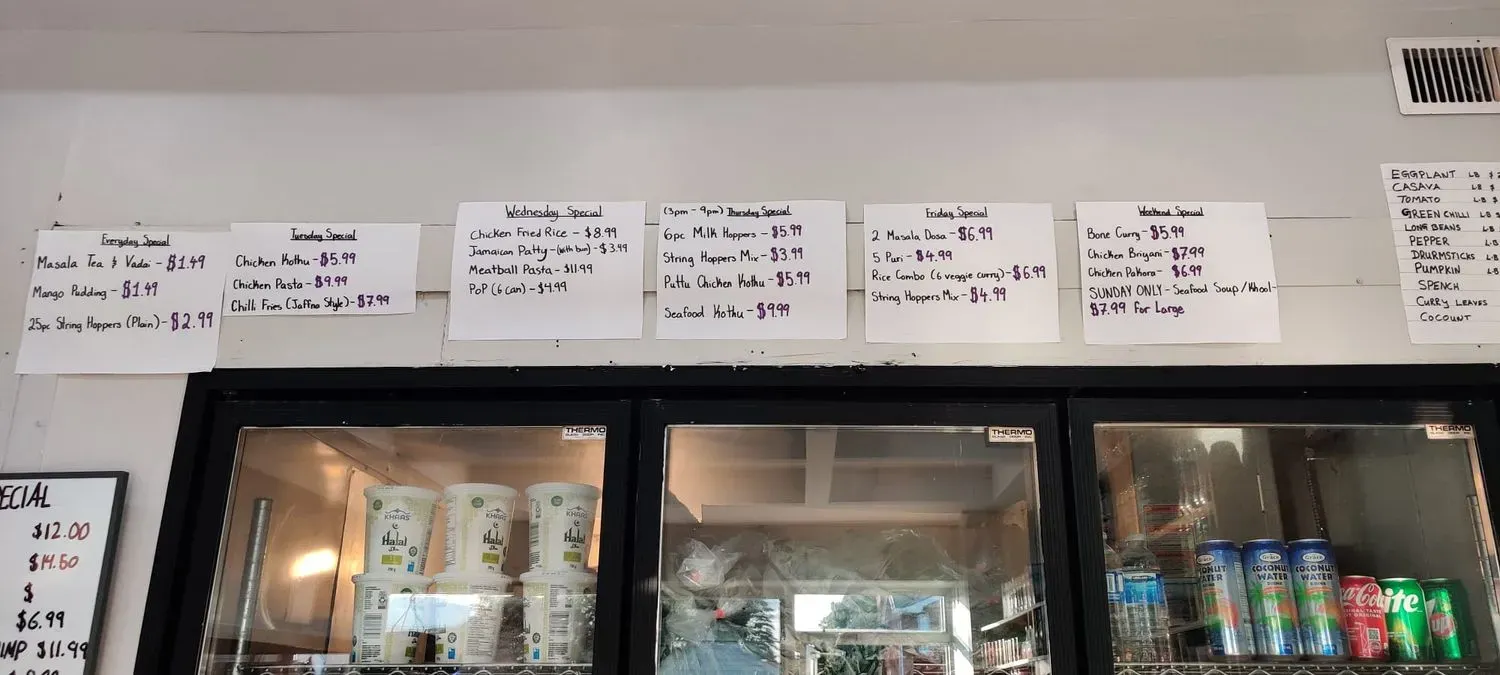 Everyday Special
Masala Tea & Vadai - $1.49
Mango Pudding - $1.49
25pc String Hoppers (Plain) - $2.99
Tuesday Special
Chicken Kothu - $5.99
Chicken Pasta - $9.99
Chilli Fries (Jaffna Style) - $7.99
Wednesday Special
Chicken Fried Rice - $8.99
Jamaican Patty - (with bun) - $3.49
Meatball Pasta - $11.99
PoP (6 can) - $4.99
(3pm - 9pm) Thursday Special
6pc Milk Hoppers - $5.99
String Hoppers Mix - $3.99
Puttu Chicken Kothu - $5.99
Seafood Kothu - $9.99
Friday Special
2 Masala Dosa - $6.99
5 Puri - $4.99
Rice Combo (6 veggie curry) - $6.99
String Hoppers Mix - $4.99
Weekend Special
Bone Curry - $5.99
Chicken Briyani - $7.99
Chicken Pakora - $6.99
SUNDAY ONLY - Seafood Soup / Khool -
$7.99 For Large
EGGPLANT LB $
CASAVA LB $
TOMATO LB $
GREEN CHILLI LB $
LONG BEANS LB
PEPPER LB
DRURMSTICKS LB
PUMPKIN LB
SPENCH
CURRY LEAVES
COCOUNT
ECIAL
$12.00
$14.50
$
$6.99
IMP $11.99
THERMO
THERMO
THERMO
KHAAS
Halal
KHAAS
Halal
KHAAS
Halal
Grace
COCONUT
WATER
Grace
COCONUT
WATER
Grace
COCONUT
WATER